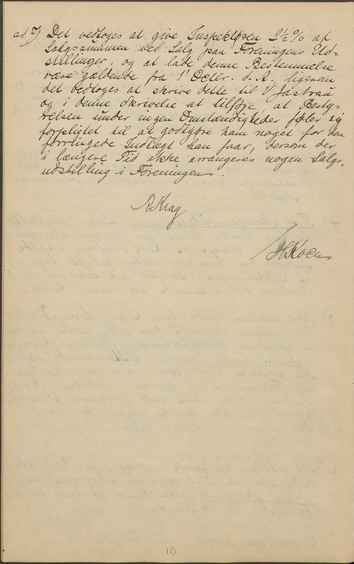 ad 7) Det vedtoges at give Inspektøren 2½ % af
Salgssummen ved Salg paa Foreningens Ud-
stillinger, og at lade denne Bestemmelse
være gældende fra 1' Octbr. d. A. ligesom
det vedtoges at skrive dette til
og i denne Skrivelse at tilføje, at Besty-
relsen under ingen Omstændigheder føler sig
forpligtet til at godtgøre ham noget for den
forringede Indtægt han faar, dersom der
i længere Tid ikke arrangeres nogen Salgs-
udstilling i Foreningen.
Krag